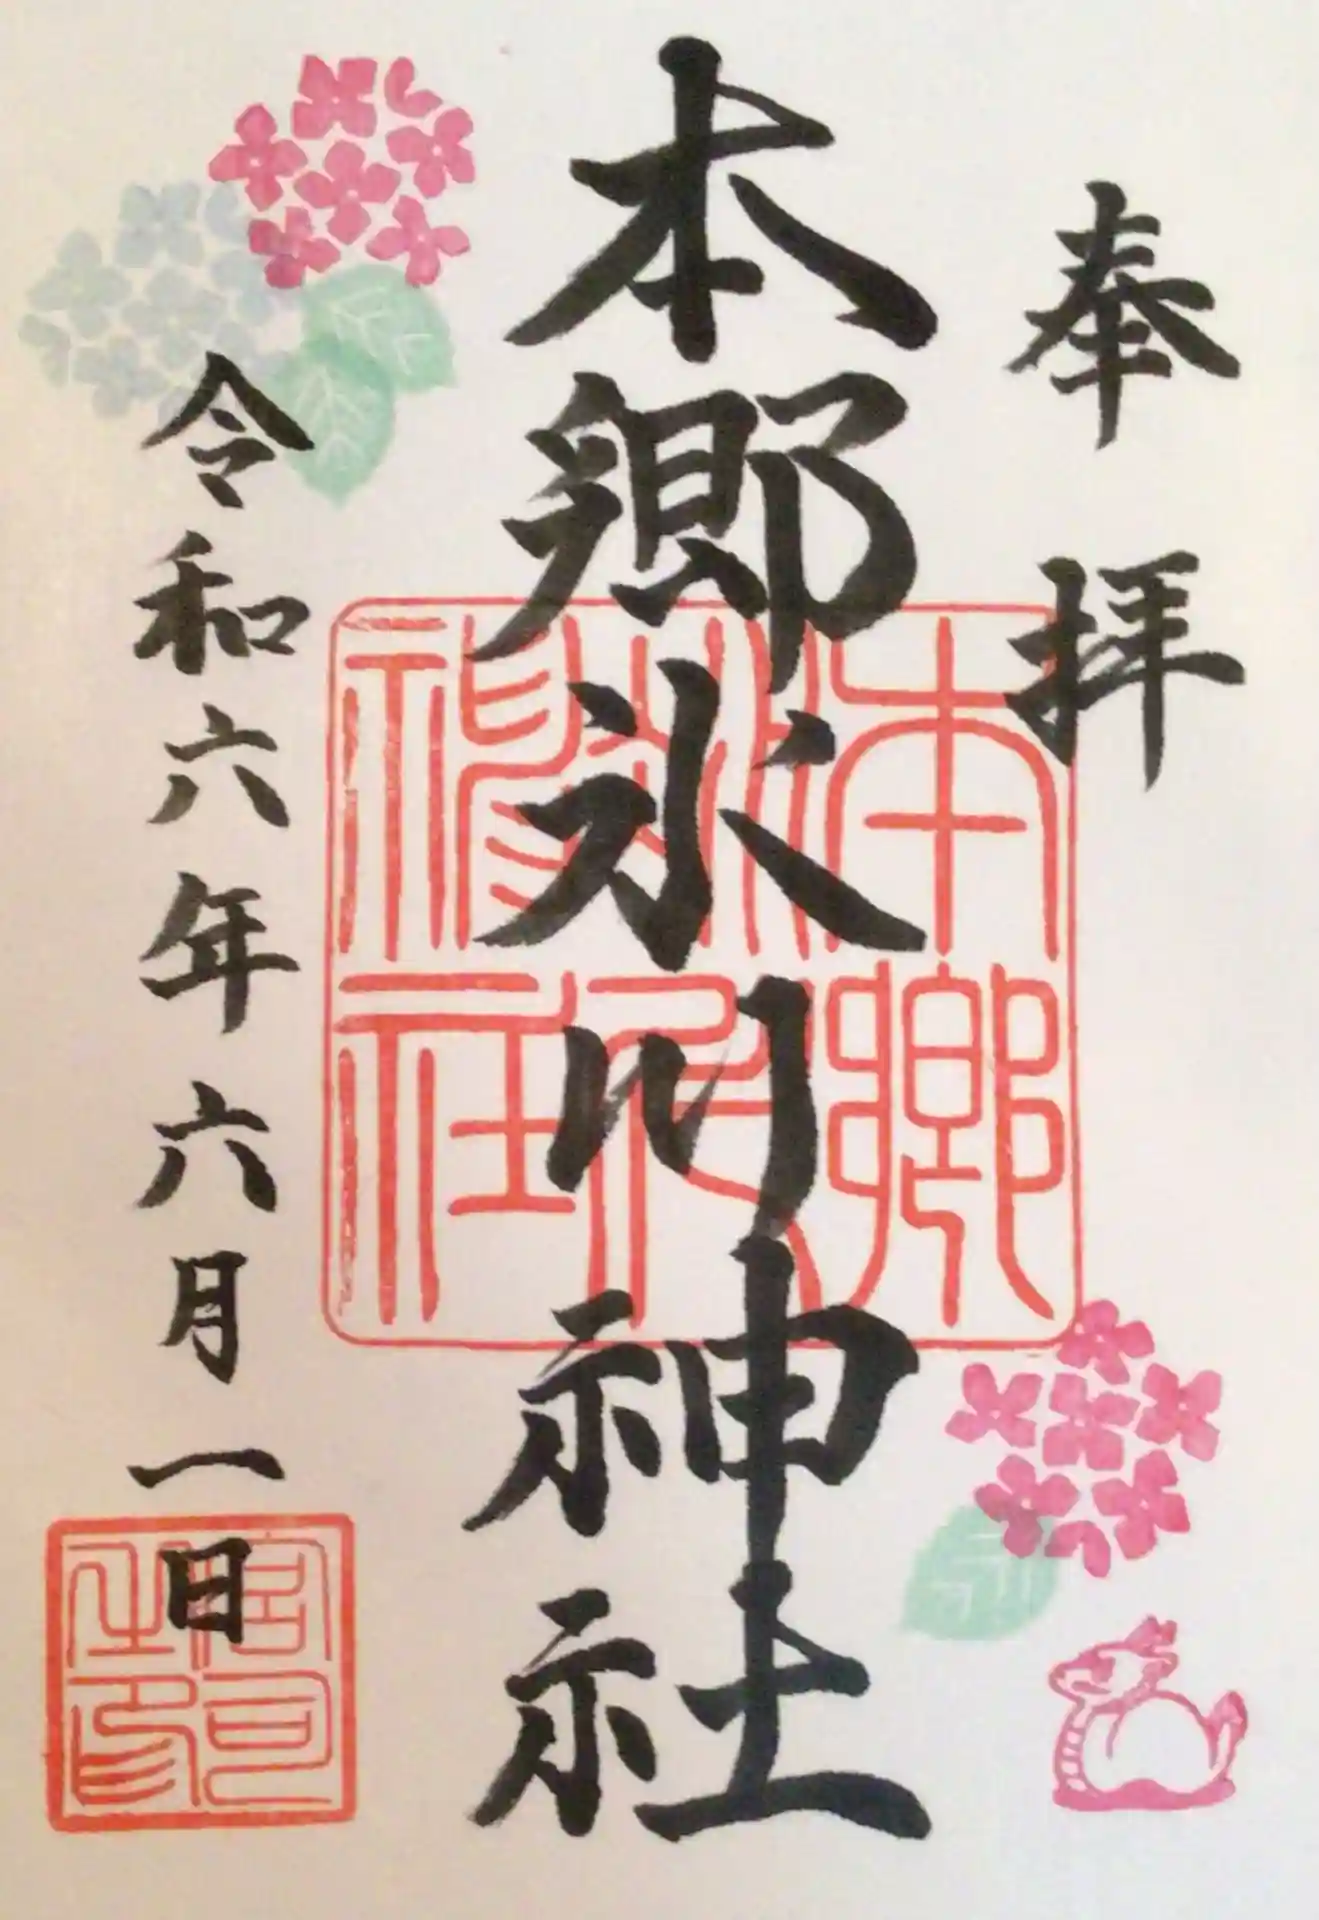 奉拝
本郷氷川神社
本郷氷川神社
令和六年六月一日
宮司之印